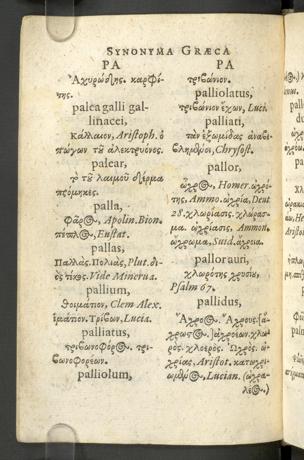 SYNONYMA GRÆCA
PA
Ἀχυρώδης. καρφί-
της.
palea galli gal-
linacei,
Κάλλαιον, Aristoph. ὁ
πώγων τῦ ἀλεκτρυόνος.
palear,
τὸ τῦ λαιμοῦ δέρμα
palla,
φᾶρος, Apolin. Bion.
πέπλος, Eustat.
pallas,
Παλλὰς. Πολιὰς, Plut.
Vide Minerua.
pallium,
θοιμάτιον, Clem Alex.
ἱμάτιον. Τρίβων, Lucia.
palliatus,
τριβωνοφόρος. τρι-
βωνοφορέων.
palliolum,
PA
τριβώνιον.
palliolatus,
τριβώνιον ἔχων, Luci.
palliati,
Chrysost.
pallor,
ὦχρος, Homer. ὠχρό-
της, Ammo. ὠχρία, Deut
28. χλωρίασις. χλωρασ-
μα. ὠχρίασις, Ammon.
ὤχρωμα, Suid. ὠχρεια.
pallor auri,
χλωρότης χρυσίυ,
Psalm 67.
pallidus,
χλω-
ρὸς. χλοερὸς. Ὠχρὸς. ὠ-
χρίας, Aristot. κατωχρι-
Lucian. (ὠχρα-
λέος.)